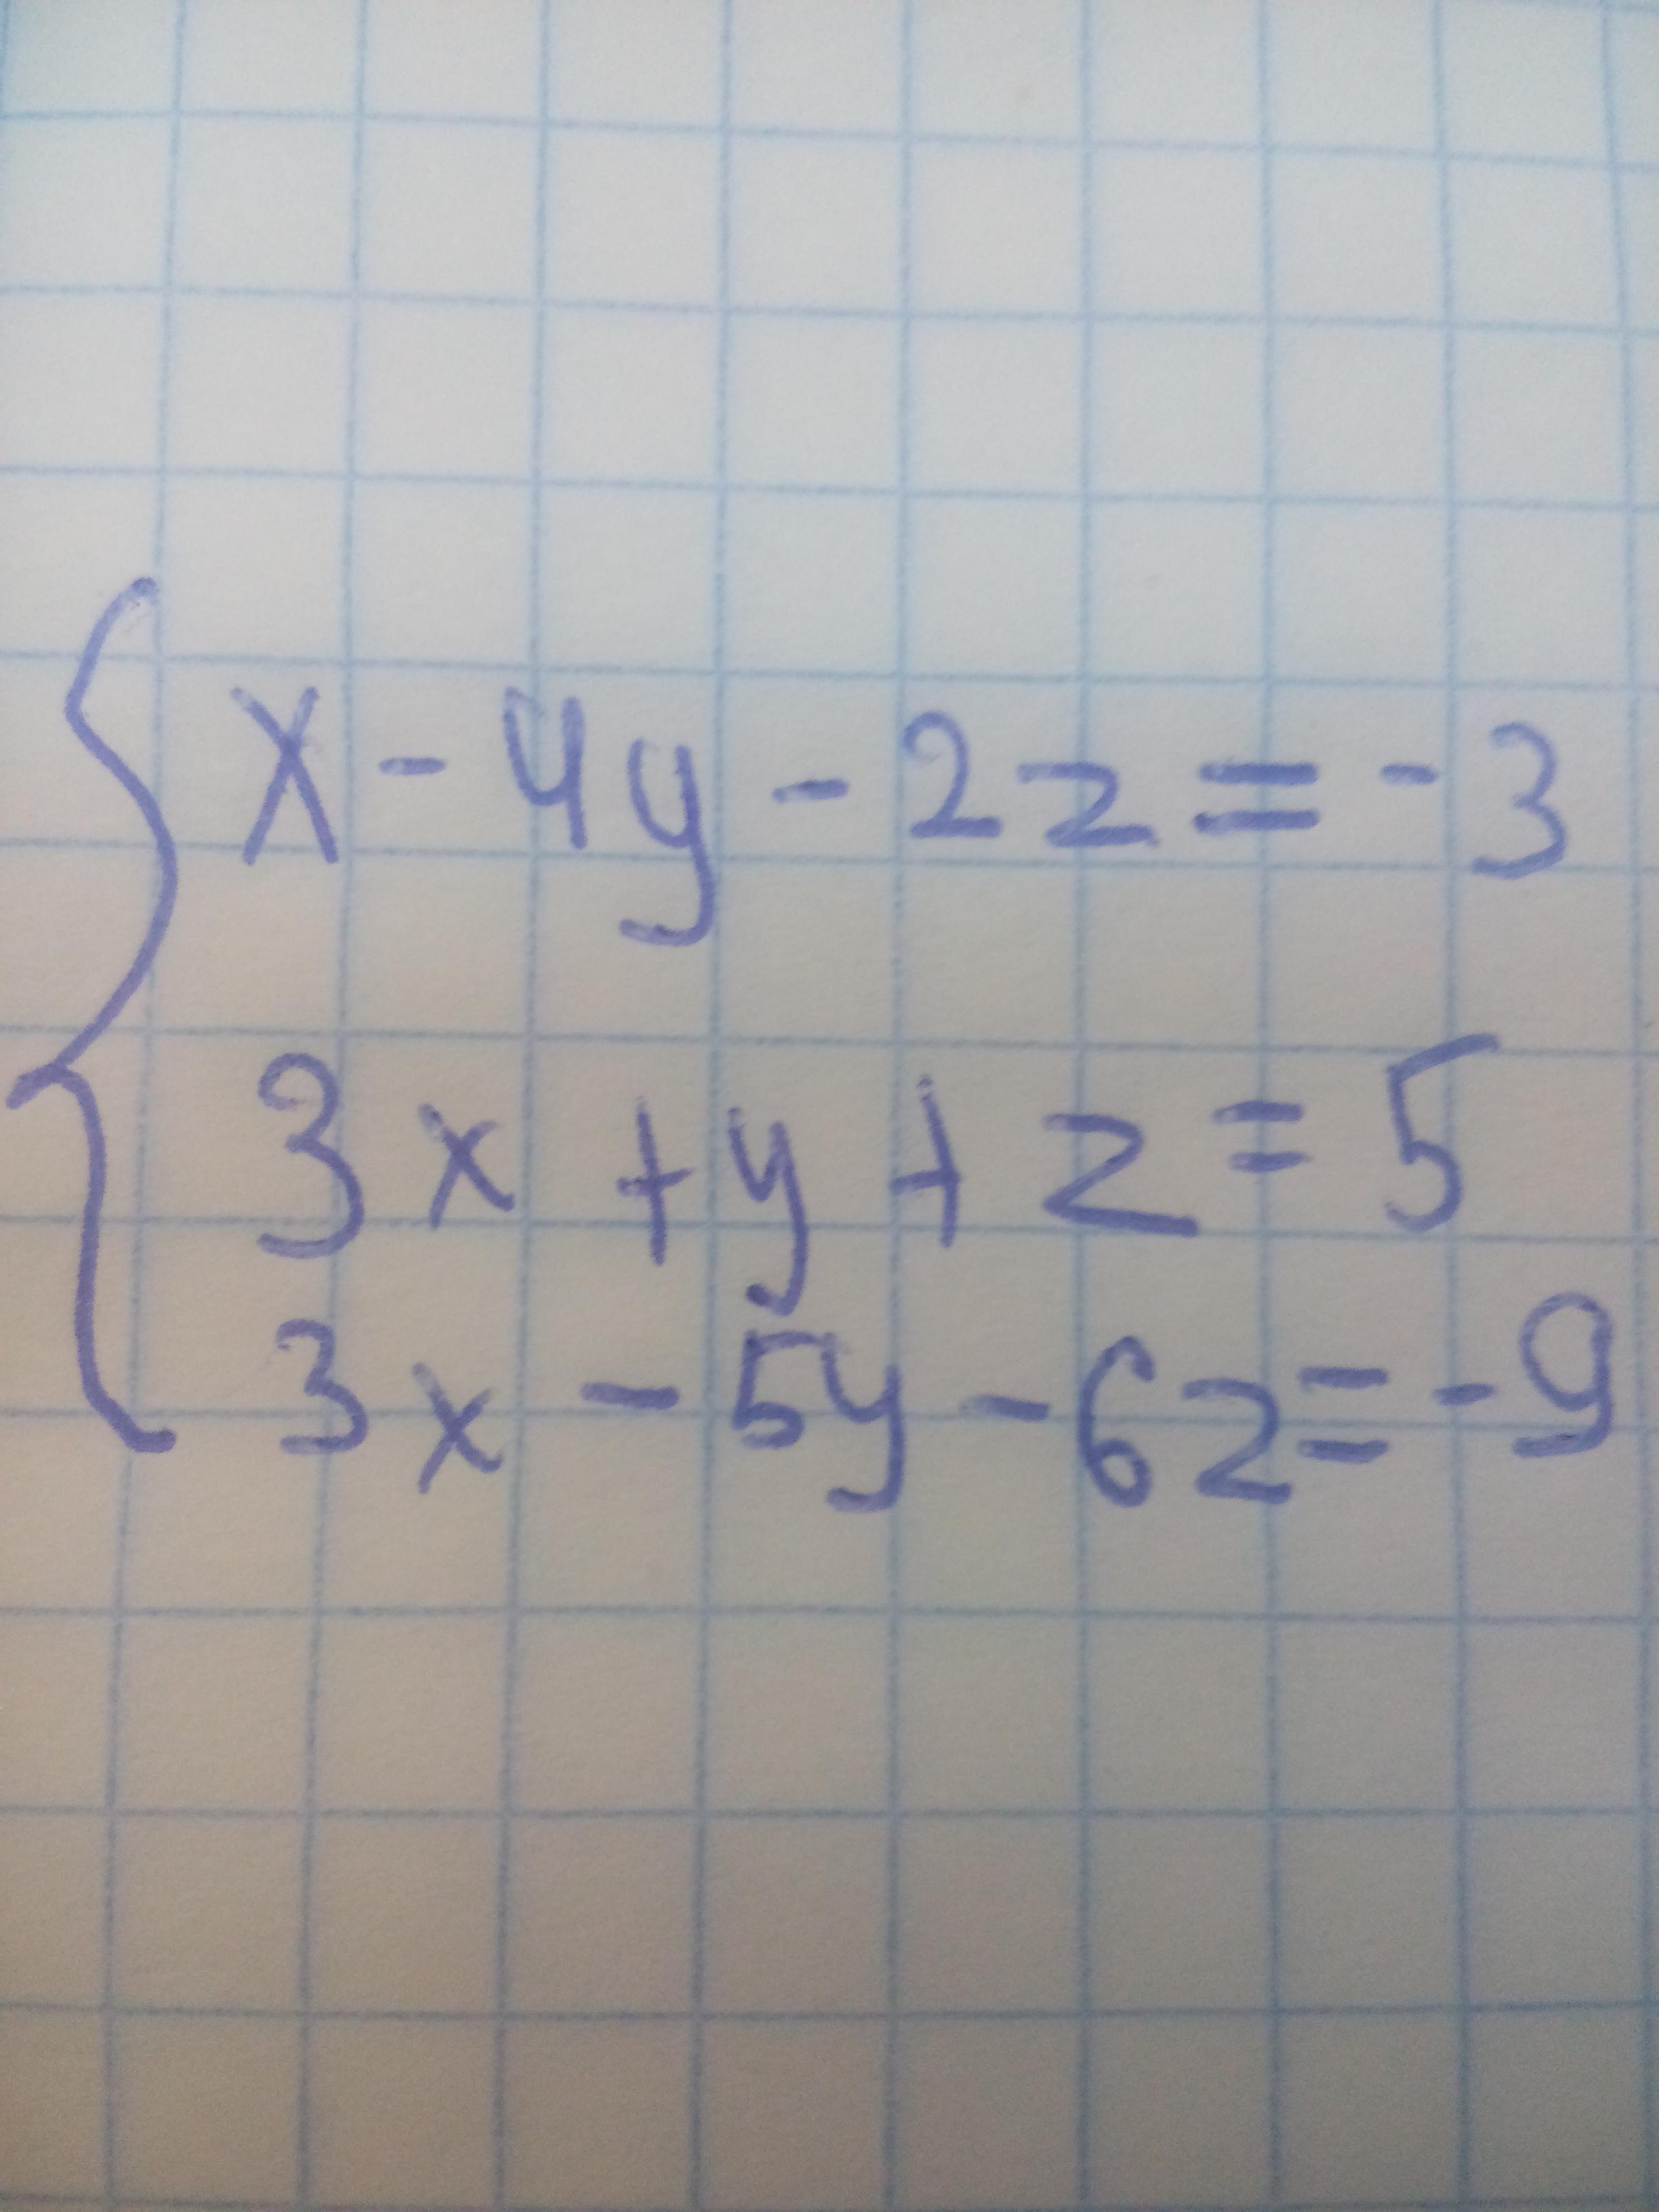 x - 4y - 2z = -3
3x + y + z = 5
3x - 5y - 6z = -9